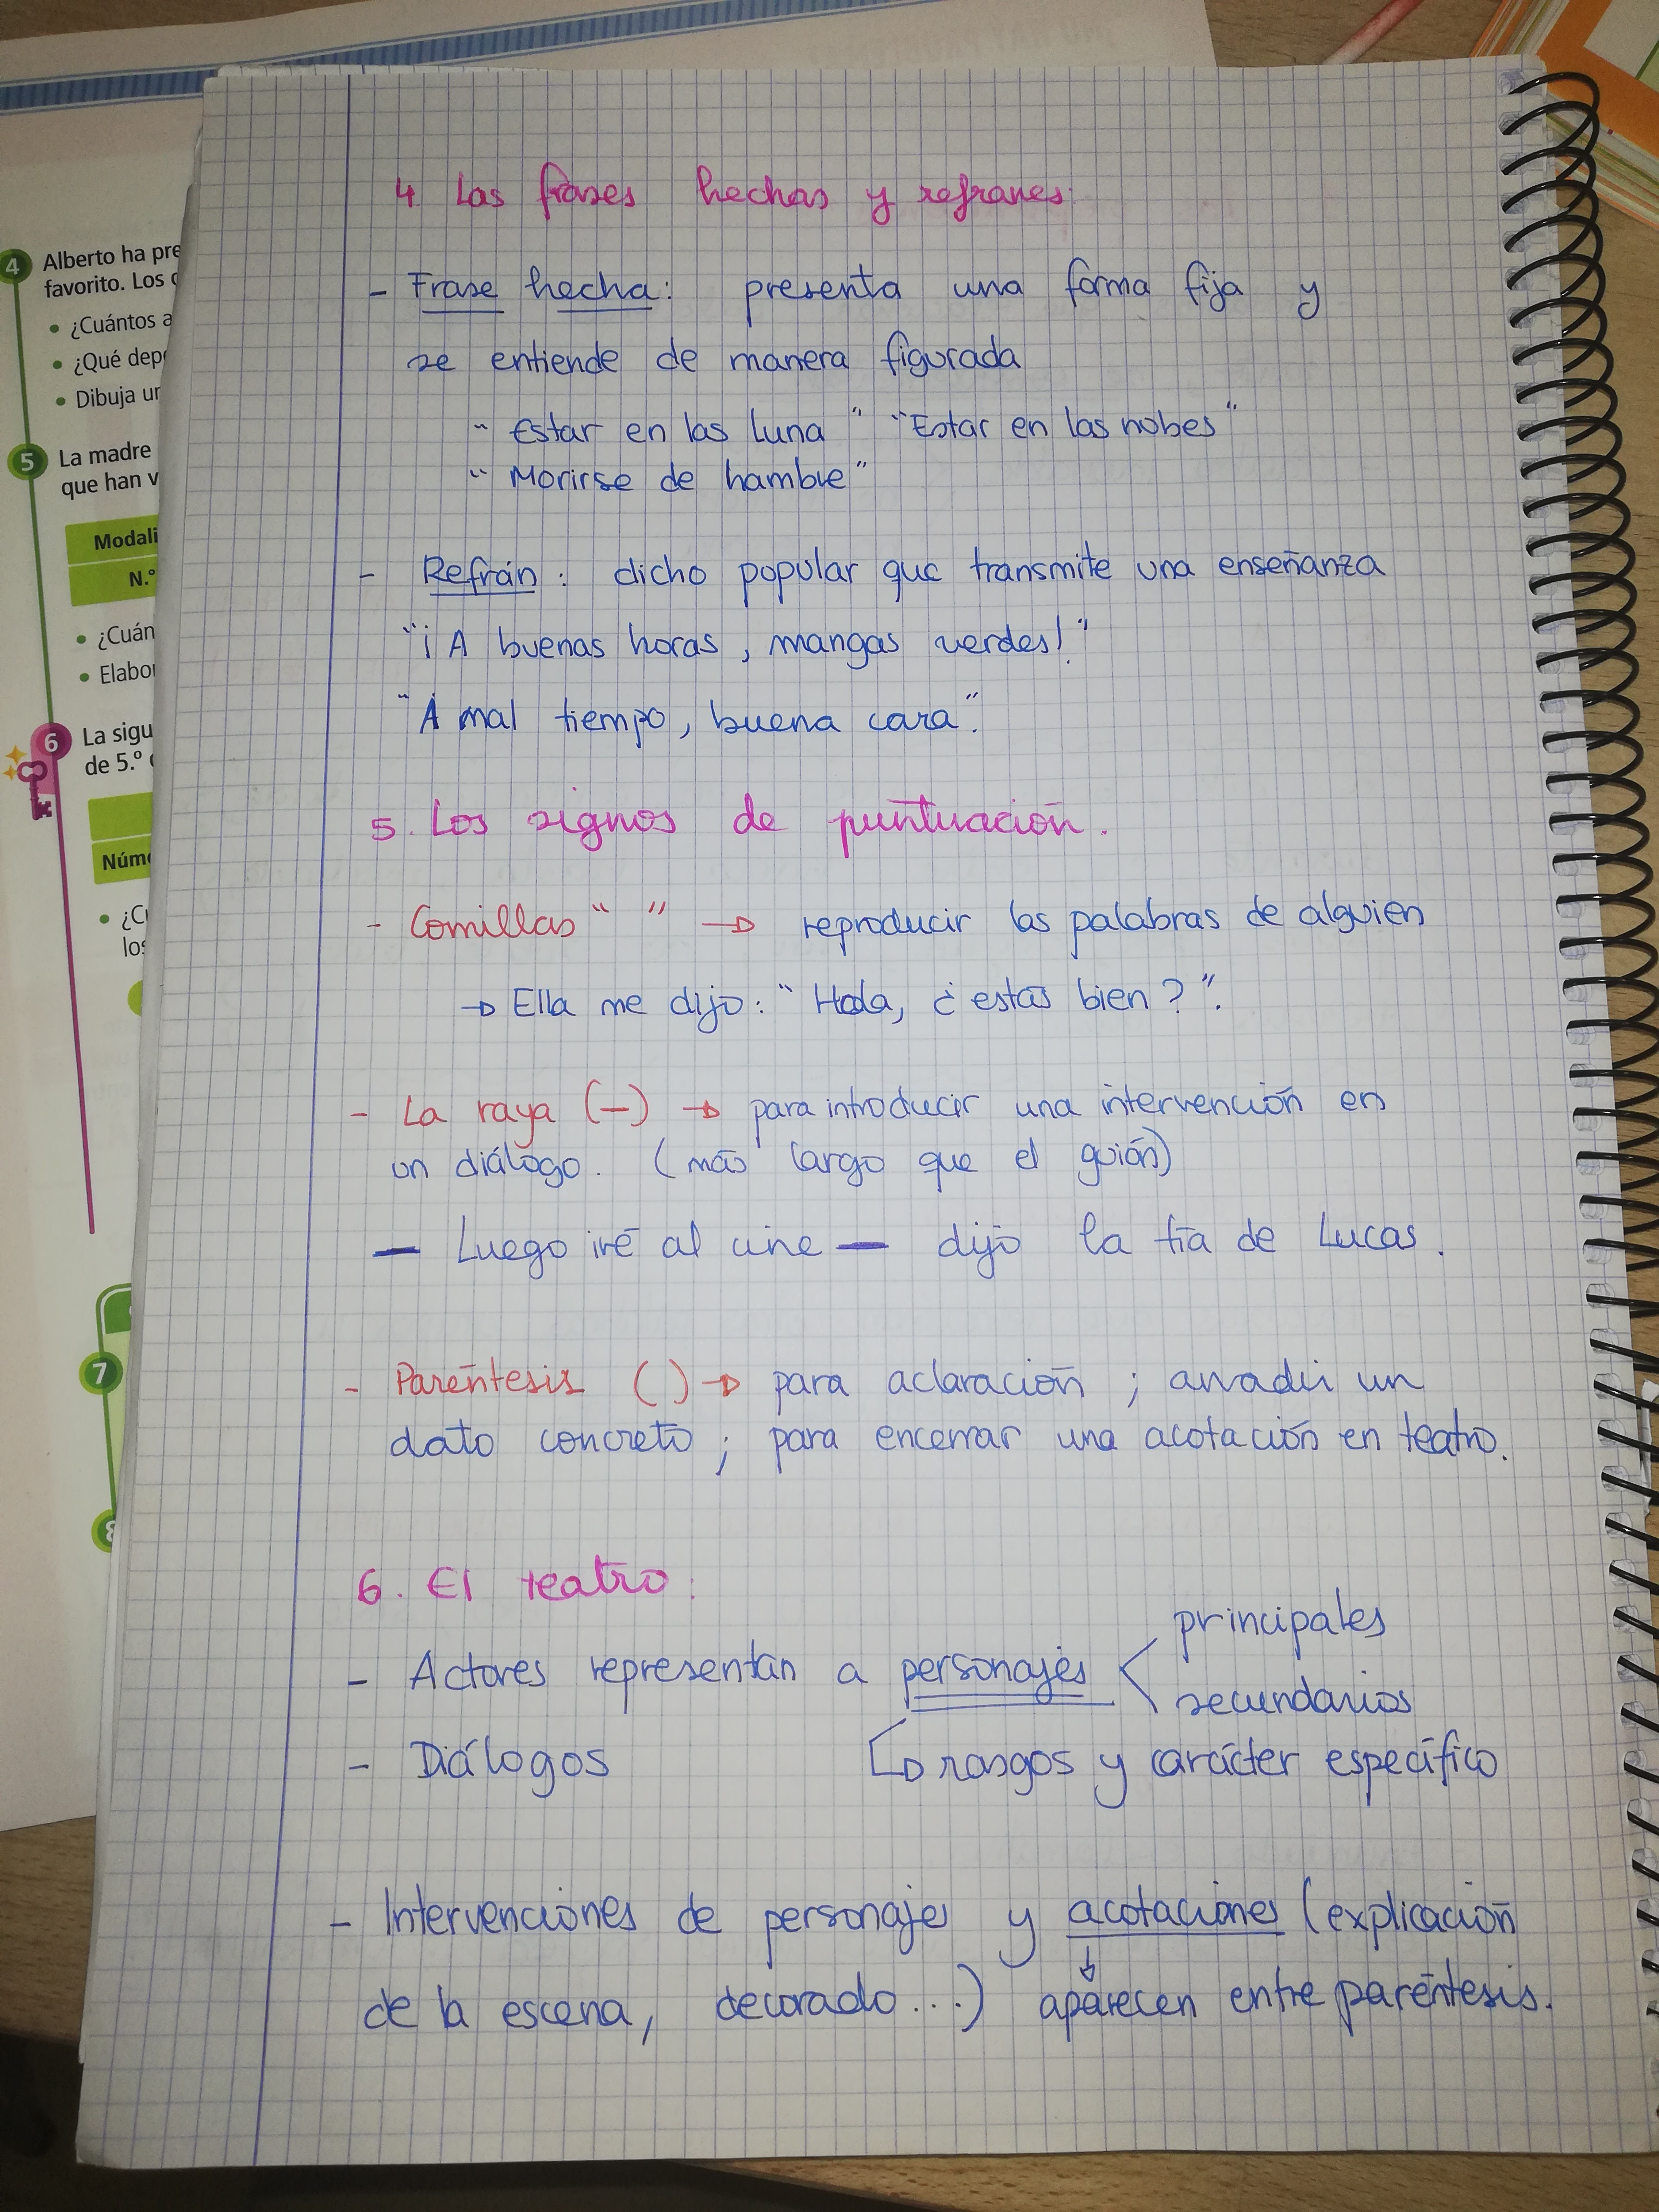 4
Alberto ha pre
favorito. Los
• ¿Cuántos a
• ¿Qué dep
• Dibuja un
5
La madre
que han v
Modali
N.º
• ¿Cuán
• Elabo
6
La sigu
de 5.º
Núm
• ¿C
los
7
8
4 Las frases hechas y refranes
- Frase hecha: presenta una forma fija y
se entiende de manera figurada
" Estar en las luna " "Estar en las nobes"
" Morirse de hambre"
- Refrán: dicho popular que transmite una enseñanza
"¡A buenas horas, mangas verdes!"
"A mal tiempo, buena cara".
5. Los signos de puntuación.
- Comillas " " → reproducir las palabras de alguien
→ Ella me dijo: "Hola, ¿estás bien?".
- La raya (—) → para introducir una intervención en
un diálogo. (más largo que el guión)
— Luego iré al cine — dijo la tía de Lucas.
- Paréntesis ( ) → para aclaración; anadir un
dato concreto; para encerrar una acotación en teatro.
6. El teatro:
- Actores representan a personajes < principales
secundarios
- Diálogos → rasgos y carácter específico
- Intervenciones de personajes y acotaciones (explicación
de la escena, decorado...) ↓ aparecen entre paréntesis.